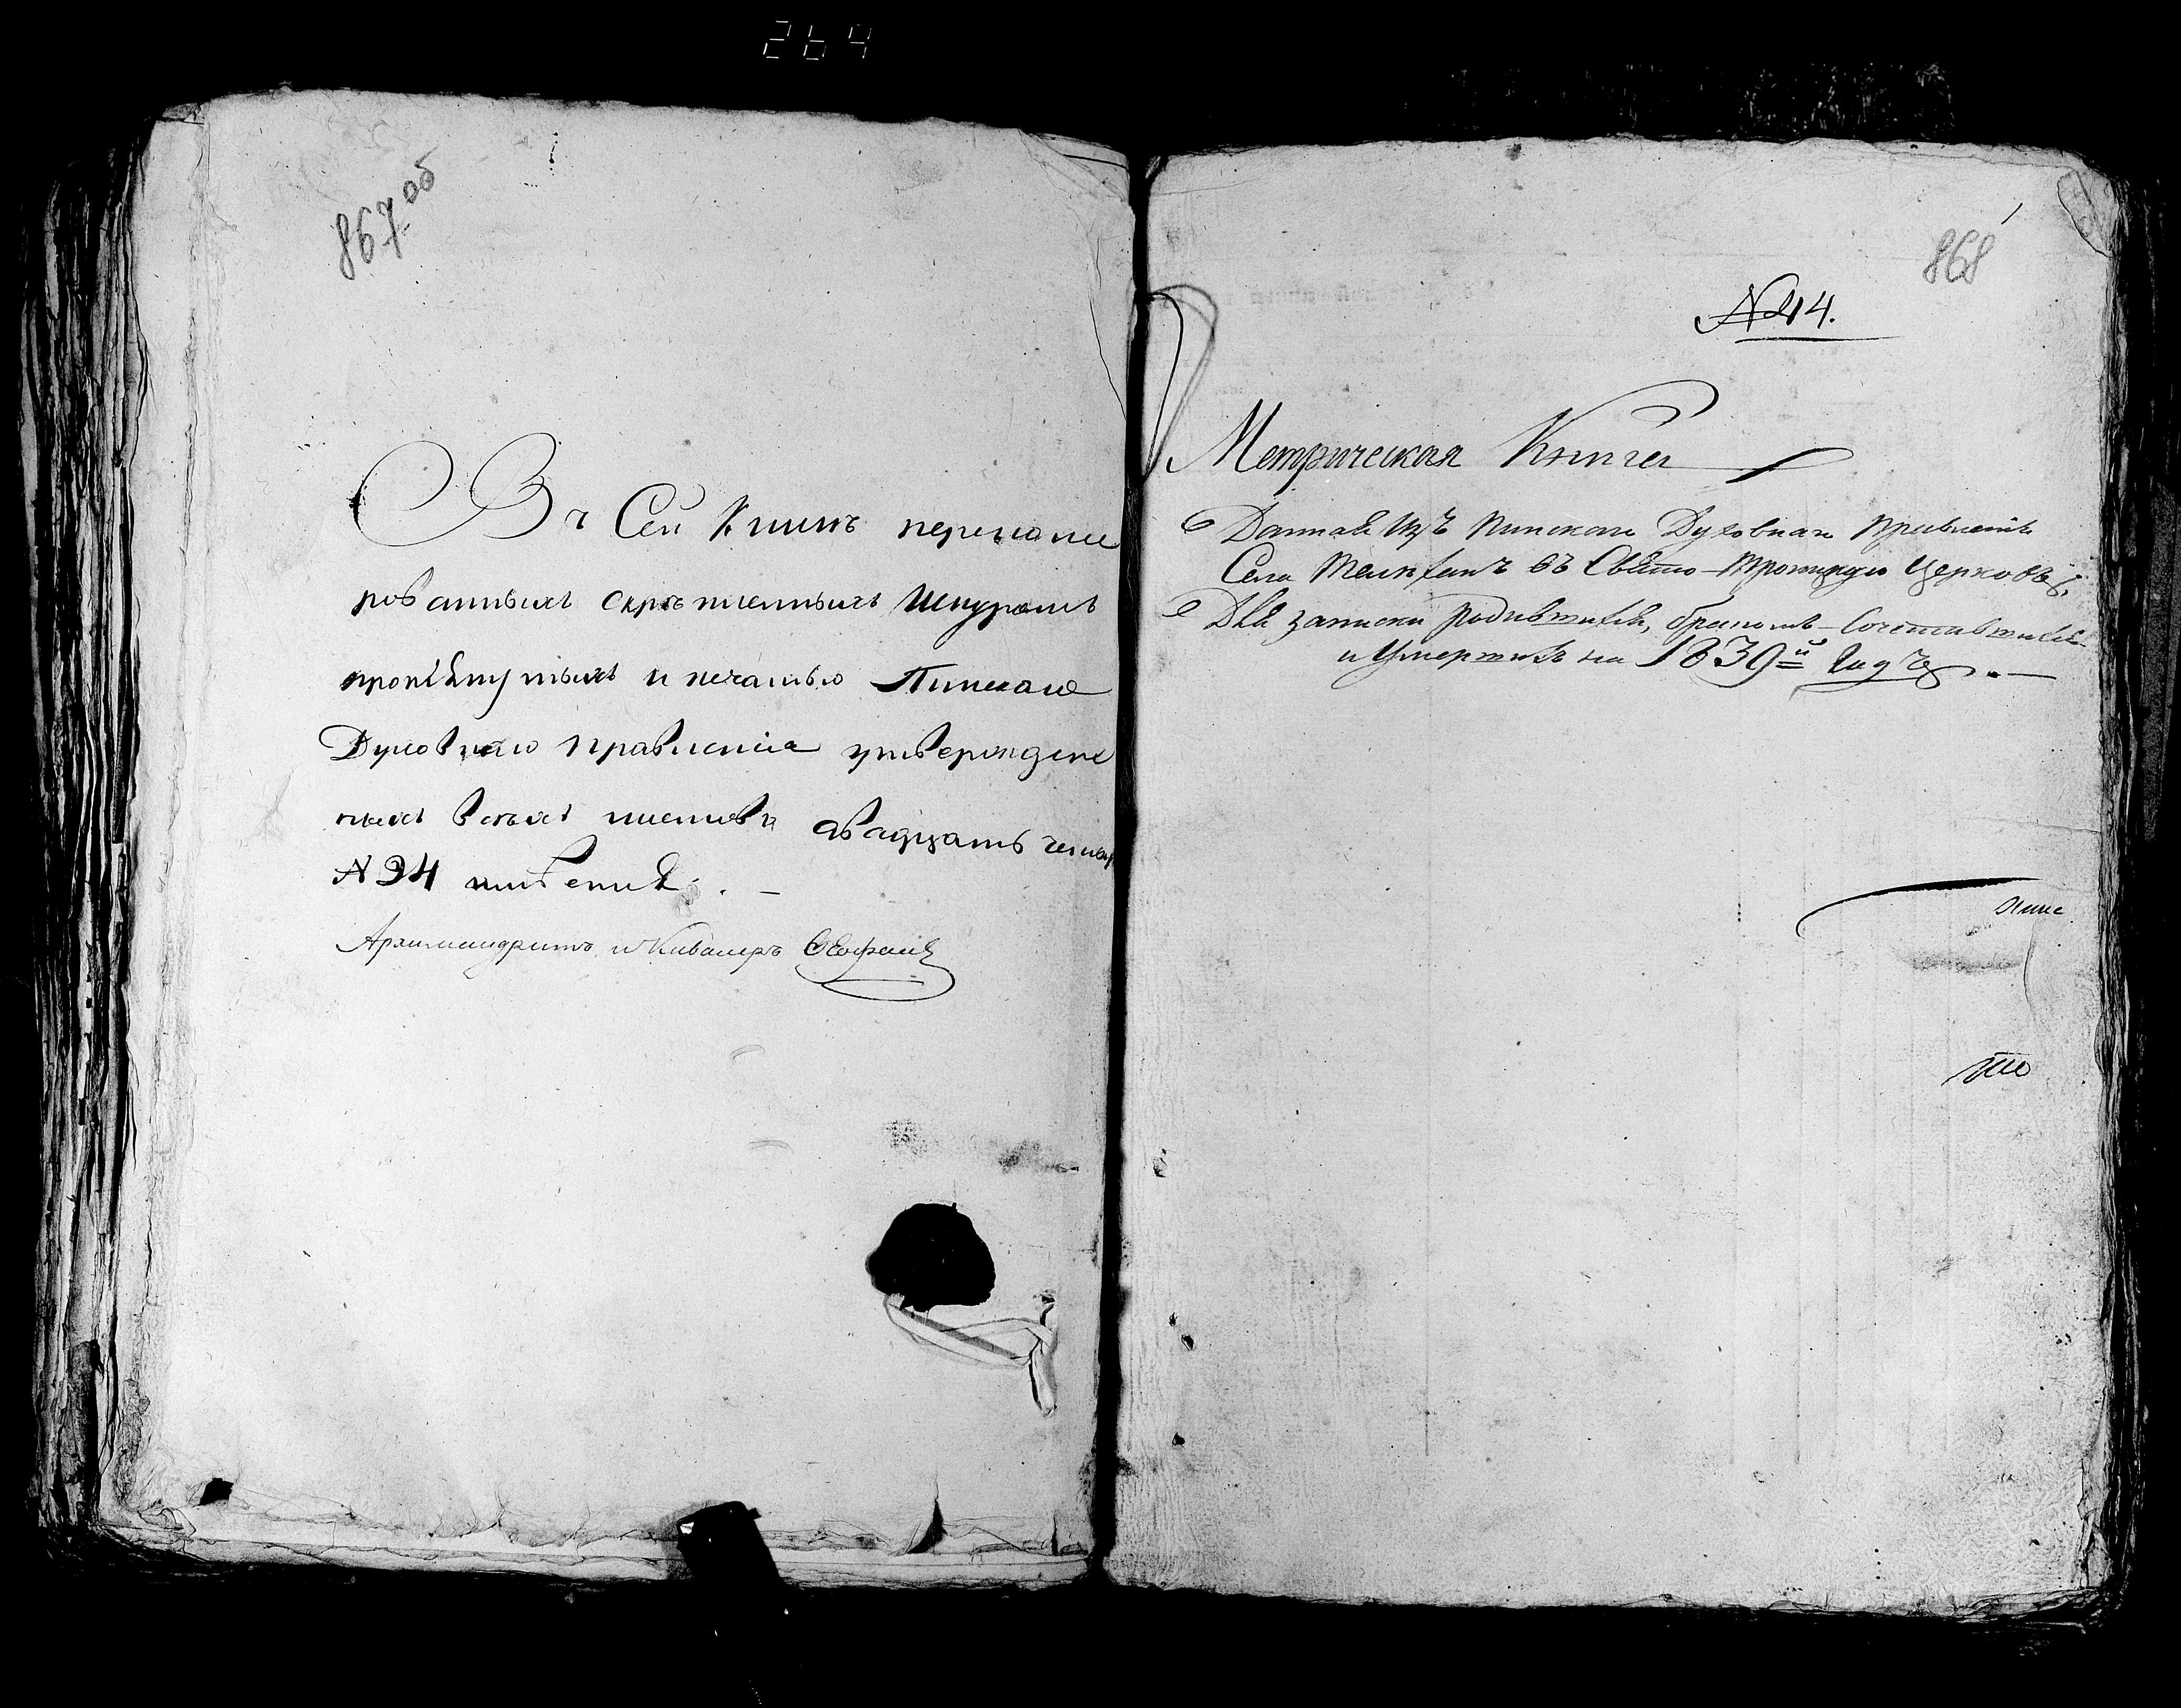 264
867 об
Въ Сей Книгѣ перенуме
рованныхъ скрѣпленныхъ шнуромъ
прошнутыхъ и печатью Пинскаго
Духовнаго Правленія утвержден
ныхъ всѣхъ листовъ двадцать четыр
№ 24
Архимандритъ и Кавалеръ
868
№ 14.
Метрическая Книга
Данная изъ Пинскаго Духовнаго Правленія
Села въ Свято-Троицкую Церковь,
Для записки родившихся, бракомъ-Сочетавшихся
и Умершихъ на 1839й Годъ. —